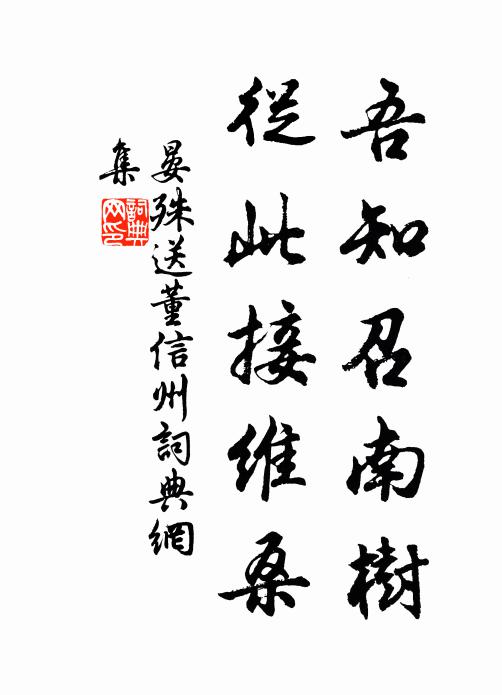 吾知召南樹
從此接維桑
晏殊送董信州詞典網
集
詞典
网印